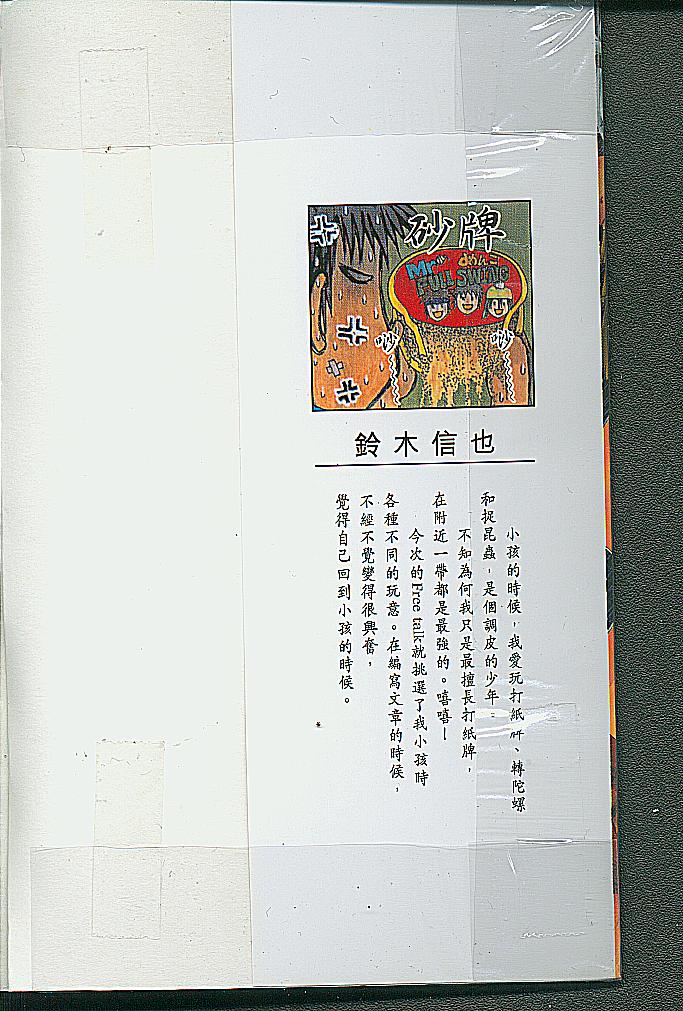 砂牌
Mr. めんこ
FULL SWING
吵
吵
鈴木信也
小孩的時候，我愛玩打紙牌、轉陀螺
和捉昆蟲，是個調皮的少年。
不知為何我只是最擅長打紙牌，
在附近一帶都是最強的。嘻嘻—
今次的Free talk就挑選了我小孩時
各種不同的玩意。在編寫文章的時候，
不經不覺變得很興奮，
覺得自己回到小孩的時候。